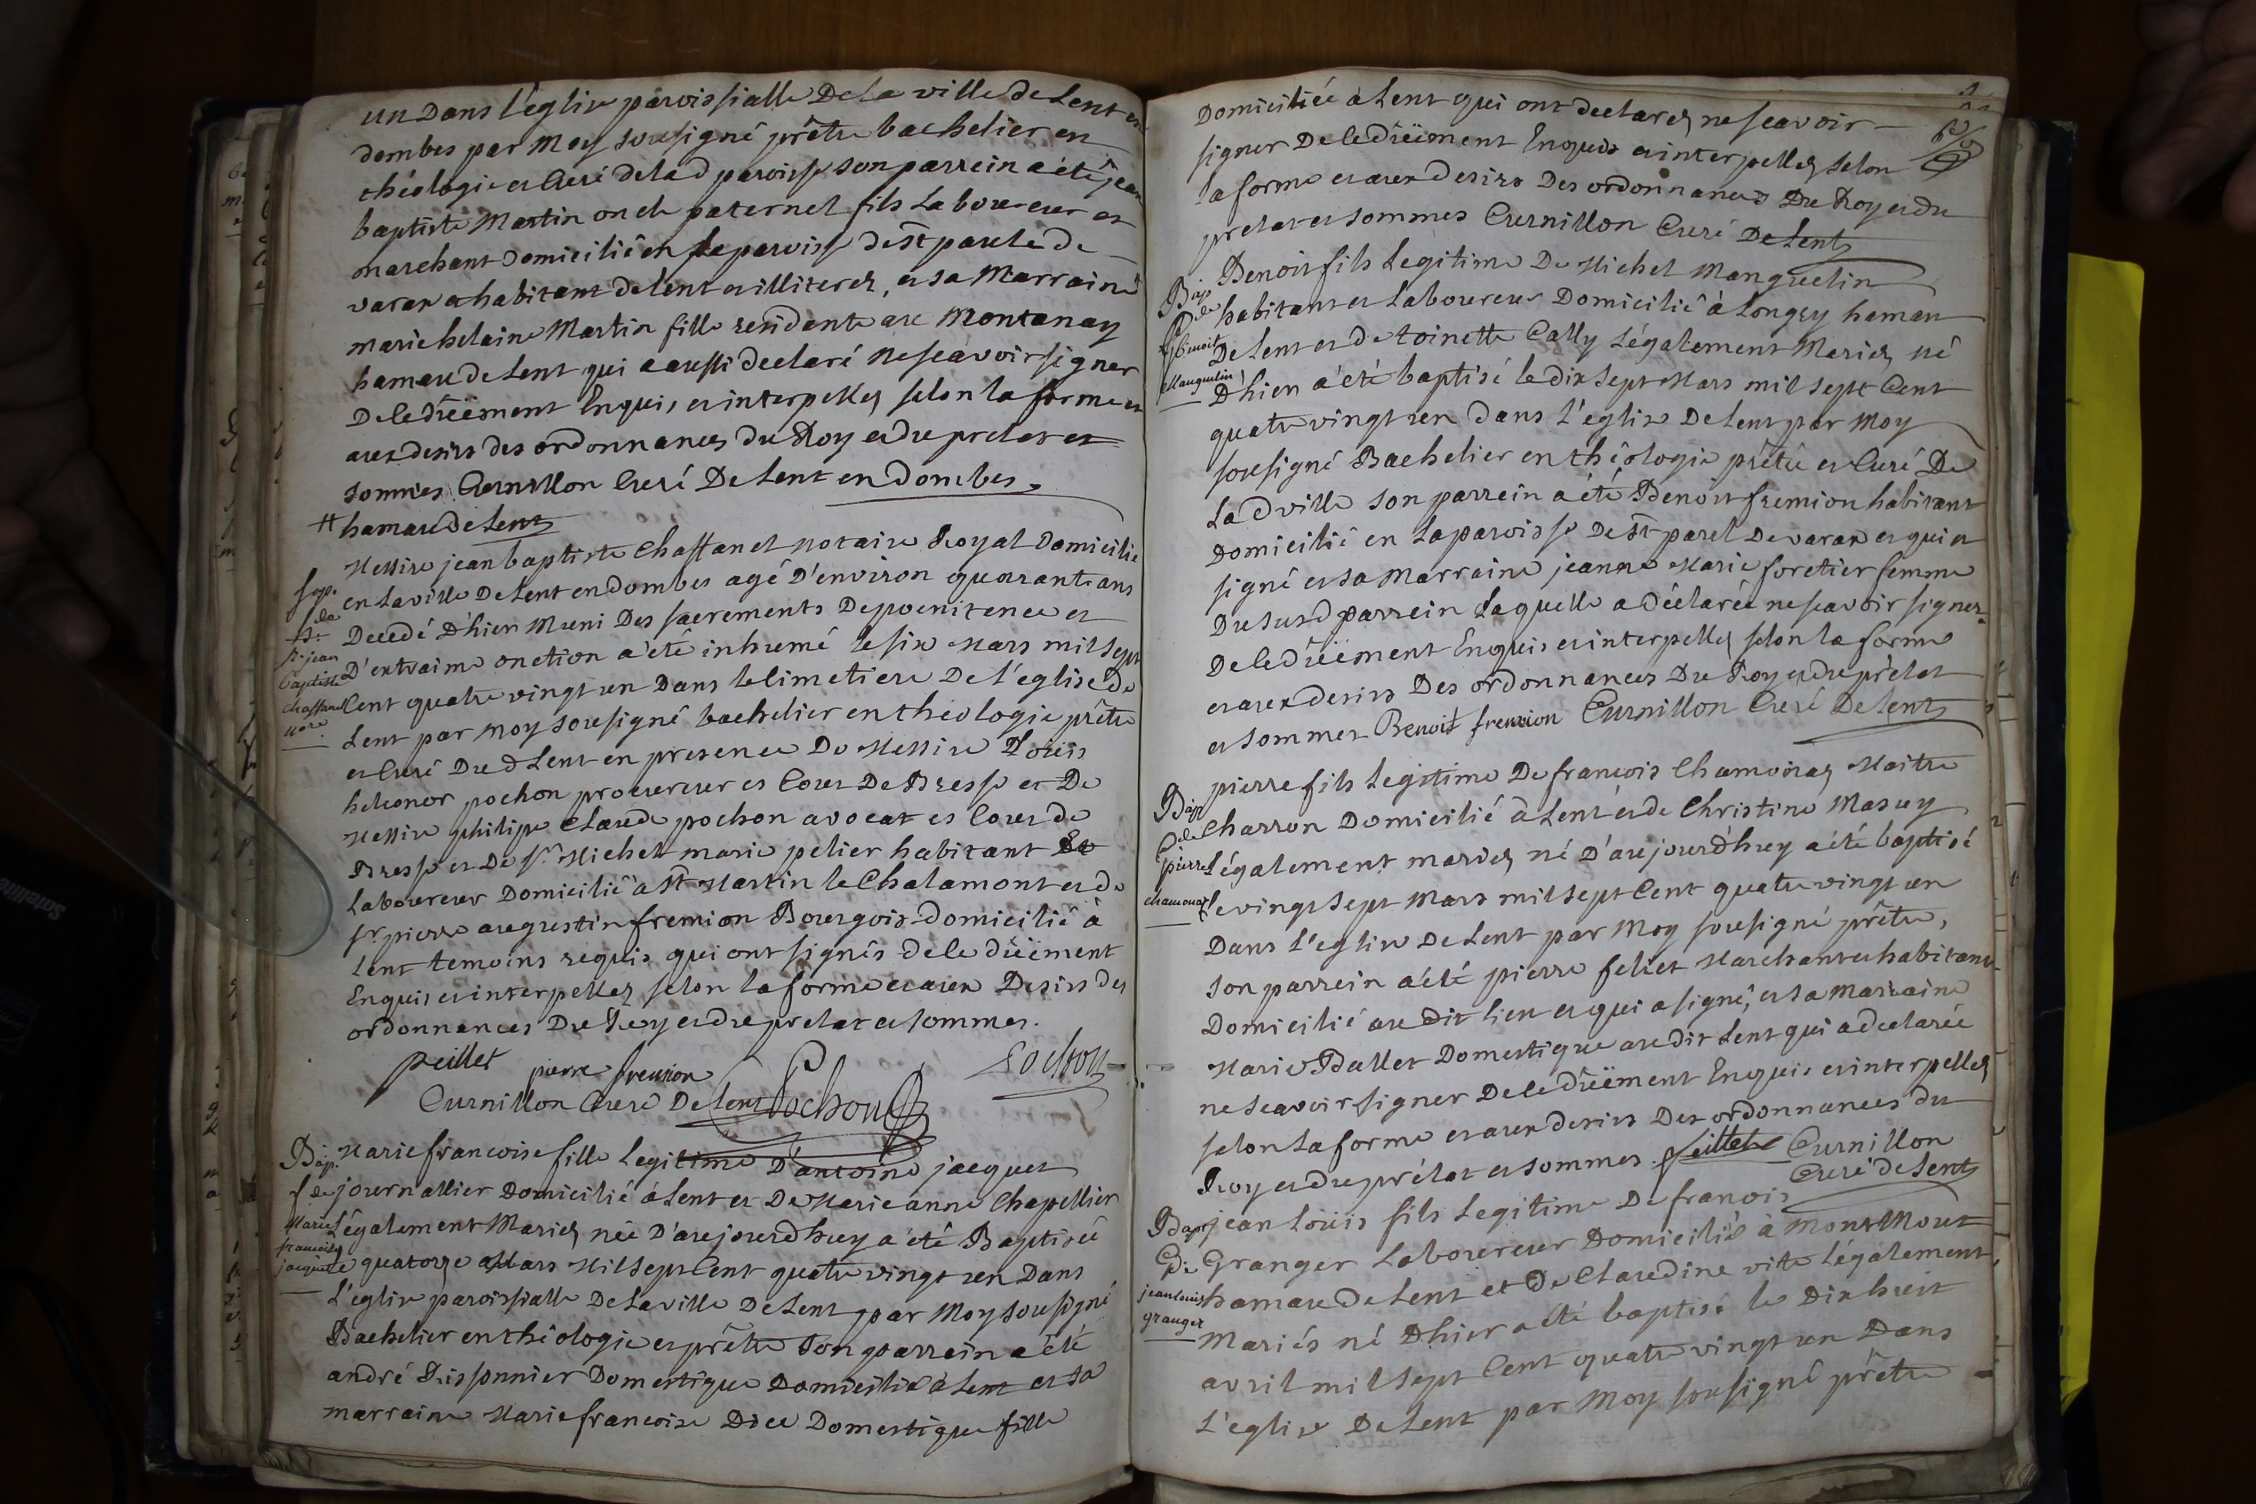 un Dans l'église paroissialle De la ville de Lent en
dombes par Moy sousigné prêtre bachelier en
théologie et Curé de lad paroisse son parrein a été jean
baptiste Martin oncle paternel fils Laboureur et
marchant domicilié en la paroisse de st paule de
varax et habitant de lent et illiterez, et sa Marraine
marie helaine Martin fille residente au Montanay
hamau de Lent qui a aussi declaré ne scavoir signer
De le düement Enquis et interpellez selon la forme et
aux desirs des ordonnances du Roy et du prelat et
sommes Curnillon Curé De Lent en dombes
# hamau de Lent
Messire jean baptiste Chassanel notaire Royal Domicilié
en la ville De Lent en dombes agé D'environ quarante ans
Decedé D'hier Muni Des sacrements De poenitence et
D'extraime onction a été inhumé le six Mars mil sept
Cent quatre vingt un Dans le Cimetiere De l'église De
Lent par Moy sousigné bachelier en theologie prêtre
et Curé Du d Lent en presence De Messire Louis
heleonor pochon procureur es Cour De Bresse et De
Messire philipe Claude pochon avocat es Cour de
Bresse et De sr Michel marie pelier habitant et
Laboureur Domicilié a st Martin le Chalamont et de
sr pierre augustin fremion Bourgois domicilié à
Lent temoins requis qui ont signés de le düement
Enquis et interpellez selon la forme et aux Desirs des
ordonnances Du Roy et du prelat et sommes.
Sep.
de
sr jean
baptiste
chassanel
nore
peillet pierre fremion Pochon
Curnillon Curé De Lent Pochon
Bap.
f de
Marie
francoise
jacquet
Marie francoise fille Legitime D'antoine jacquet
journallier Domicilié à Lent et De Marie anne Chapellier
Légalement Mariez née D'aujourdhuy a été Baptisée
le quatorze Mars Mil sept Cent quatre vingt un Dans
L'eglise paroissialle De La ville De Lent par Moy sousigné
Bachelier en théologie et prêtre son parrein a été
andré Brissonnier Domestique Domicilié à Lent et sa
marraine Marie francoise Domestique fille
Domiciliée à Lent qui ont declarez ne scavoir
signer De le düement Enquis et interpellez selon
la forme et aux desirs Des ordonnances Du Roy et du
prelat et sommes Curnillon Curé De Lent
Bap
de
Benoit
Manguelin
Benoit fils Legitime De Michel Manguelin
habitant et Laboureur Domicilié à Longey hamau
De Lent et de toinette Cally Légalement Mariez né
D'hier a été baptisé le dix sept Mars mil sept Cent
quatre vingt un dans L'eglise De Lent par Moy
sousigné Bachelier en théologie prêtre et Curé De
Lad ville son parrein a été Benoit fremion habitant
Domicilié en La paroisse De st paul De varax et qui a
signé et sa Marraine jeanne Marie foretier femme
Du susd parrein Laquelle a déclarée ne scavoir signer
De le düement Enquis et interpellez selon la forme
et aux desirs Des ordonnances Du Roy et du prelat
et sommes Benoit fremion Curnillon Curé De Lent
Bap
de
pierre
chamouraz
pierre fils Legitime De francois Chamouraz Maitre
Charron Domicilié à Lent et de Christine Masuy
Légalement mariez né D'aujourdhuy a été baptisé
le vingt sept Mars mil sept Cent quatre vingt un
Dans L'eglise De Lent par Moy sousigné prêtre,
son parrein a été pierre feliet Marchant et habitant
Domicilié au dit lieu et qui a signé, et sa Marraine
Marie Ballet Domestique au dit Lent qui a declarée
ne scavoir signer De le düement Enquis et interpellez
selon La forme et aux desirs Des ordonnances du
Roy et du prélat et sommes feillet Curnillon
Curé de Lent
Bap
de
jean louis
granger
jean Loüis fils Legitime De francois
Granger Laboureur Domicilié à Mont Mout
hamau de Lent et de Claudine vite Légalement
Mariés né D'hier a été baptisé le Dix huit
avril mil sept Cent quatre vingt un Dans
L'eglise De Lent par Moy sousigné prêtre